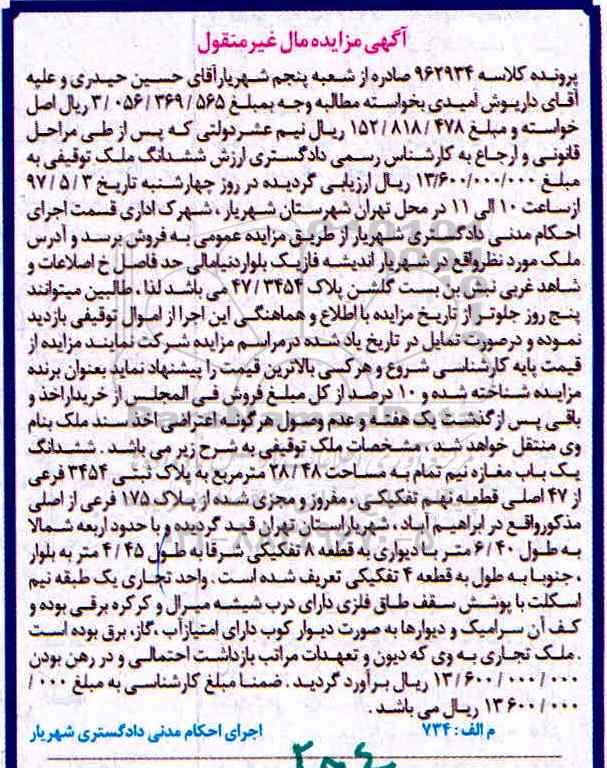 آگهی مزایده مال غیر منقول
پرونده کلاسه ۹۶۲۹۳۴ صادره از شعبه پنجم شهریارآقای حسین حیدری و علیه
آقای داریوش امیدی بخواسته مطالبه وجه بمبلغ ۵۶۵/ ۳۶۹/ ۰۵۶/ ۳ ریال اصل
خواسته و مبلغ ۴۷۸/ ۸۱۸/ ۱۵۲ ریال نیم عشردولتی که پس از طی مراحل
قانونی و ارجاع به کارشناس رسمی دادگستری ارزش ششدانگ ملک توقیفی به
مبلغ ۱۳/۶۰۰/۰۰۰/۰۰۰ ریال ارزیابی گردیده در روز چهارشنبه تاریخ ۳/ ۵/ ۹۷
ازساعت ۱۰ الی ۱۱ در محل تهران شهرستان شهریار ، شهرک اداری قسمت اجرای
احکام مدنی دادگستری شهریار از طریق مزایده عمومی به فروش برسد و آدرس
ملک مورد نظرواقع در شهریار اندیشه فازیک بلواردنیامالی حد فاصل خ اصلاعات و
شاهد غربی نبش بن بست گلشن پلاک ۳۴۵۴/ ۴۷ می باشد لذا ، طالبین میتوانند
پنج روز جلوتر از تاریخ مزایده با اطلاع و هماهنگی این اجرا از اموال توقیفی بازدید
نموده و درصورت تمایل در تاریخ یاد شده درمراسم مزایده شرکت نمایند مزایده از
قیمت پایه کارشناسی شروع و هرکسی بالاترین قیمت را پیشنهاد نماید بعنوان برنده
مزایده شناخته شده و ۱۰ درصد از کل مبلغ فروش فی المجلس از خریداراخذ و
باقی پس از گذشت یک هفته و عدم وصول هرگونه اعتراضی اخذ سند ملک بنام
وی منتقل خواهد شد ، مشخصات ملک توقیفی به شرح زیر می باشد . ششدانگ
یک باب مغازه نیم تمام به مساحت ۴۸/ ۲۸ مترمربع به پلاک ثبتی ۳۴۵۴ فرعی
از ۴۷ اصلی قطعه نهم تفکیکی ، مفروز و مجزی شده از پلاک ۱۷۵ فرعی از اصلی
مذکورواقع در ابراهیم آباد ، شهریاراستان تهران قید گردیده و با حدود اربعه شمالا
به طول ۴۰/ ۶ متر با دیواری به قطعه ۸ تفکیکی شرقا به طول ۴۵/ ۴ متر به بلوار
، جنوبا به طول به قطعه ۴ تفکیکی تعریف شده است . واحد تجاری یک طبقه نیم
اسکلت با پوشش سقف طاق فلزی دارای درب شیشه میرال و کرکره برقی بوده و
کف آن سرامیک و دیوارها به صورت دیوار کوب دارای امتیازآب ،گاز، برق بوده است
. ملک تجاری به وی که دیون و تعهدات مراتب بازداشت احتمالی و در رهن بودن
۰۰۰/ ۰۰۰/ ۶۰۰/ ۱۳ ریال برآورد گردید . ضمنا مبلغ کارشناسی به مبلغ ۰۰۰/
۰۰۰/ ۱۳۶۰۰ ریال می باشد .
م الف : ۷۳۴ اجرای احکام مدنی دادگستری شهریار